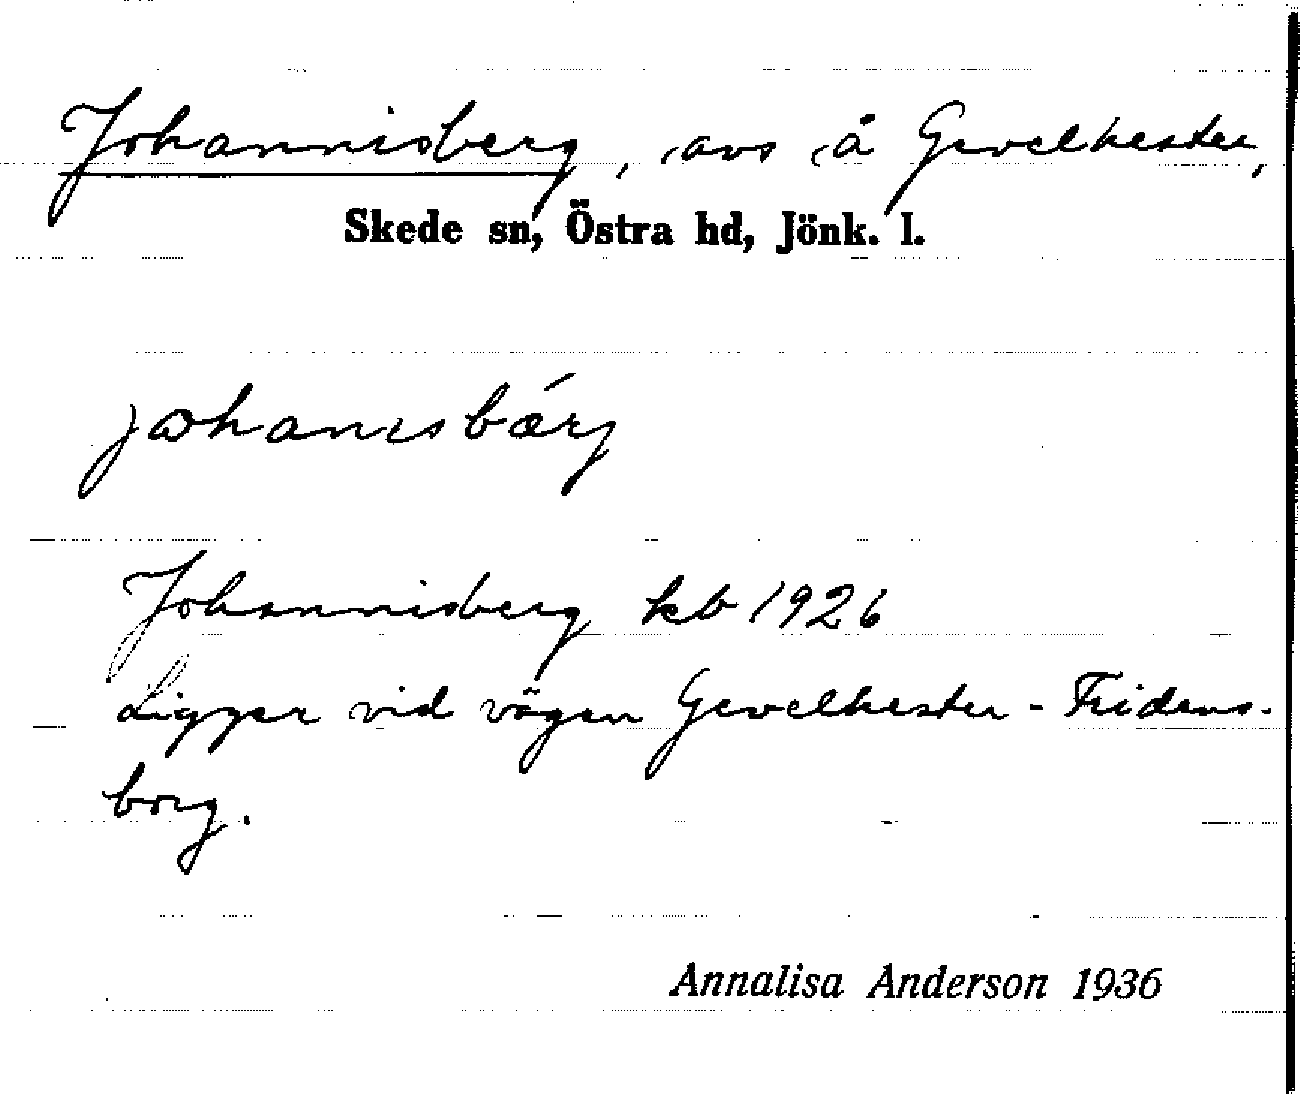 Johannisberg, avs å Gevelhester,
Skede sn, Östra hd, Jönk. l.
johanısbárj
Johannisberg kb 1926
Ligger vid vägen Gevelhester - Fridens-
borg.
Annalisa Anderson 1936